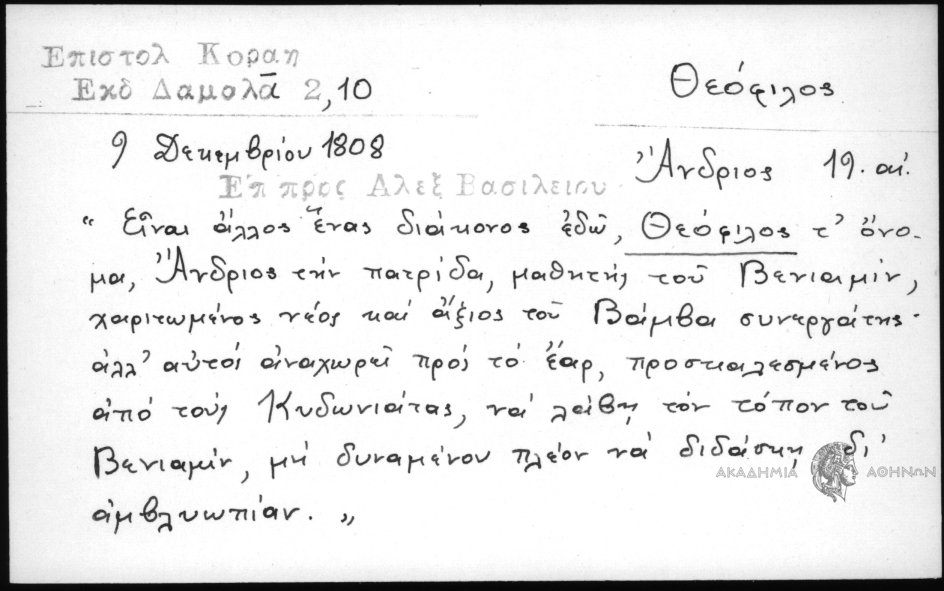 Επιστολ Κοραη
Εκδ Δαμαλᾶ 2,10
Θεόφιλος
9 Δεκεμβρίου 1808
Ἄνδριος 19. αἰ.
Επ προς Αλεξ Βασιλειου
“ Εἶναι ἄλλος ἕνας διάκονος ἐδῶ, Θεόφιλος τ' ὄνο-
μα, Ἄνδριος τήν πατρίδα, μαθητής τοῦ Βενιαμίν,
χαριτωμένος νέος καί ἄξιος τοῦ Βάμβα συνεργάτης·
ἀλλ' αὐτός ἀναχωρεῖ πρός τό ἔαρ, προσκαλεσμένος
ἀπό τούς Κυδωνιάτας, νά λάβῃ τόν τόπον τοῦ
Βενιαμίν, μή δυναμένου πλέον νά διδάσκῃ δι'
ἀμβλυωπίαν. „
ΑΚΑΔΗΜΙΑ ΑΘΗΝΩΝ